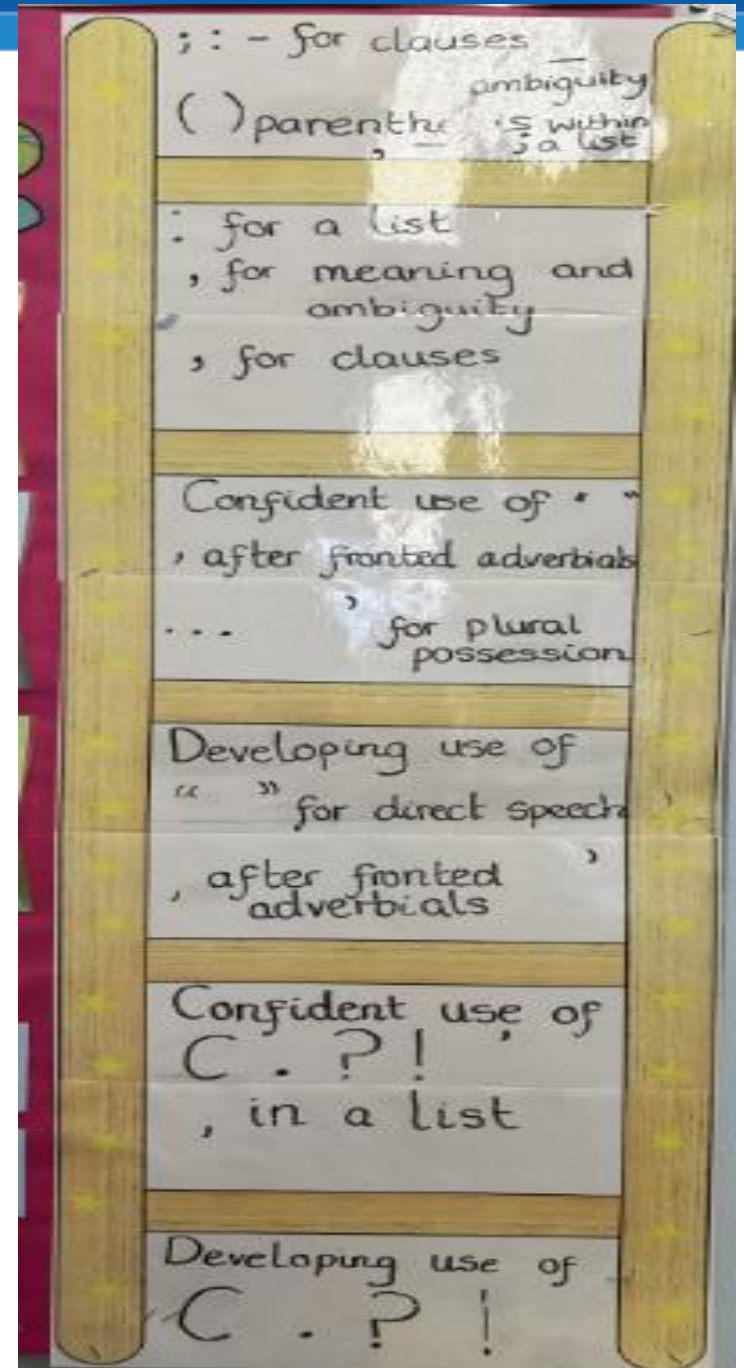 ; : - for clauses
ambiguity
( ) parenthe is within
, – ; a list
: for a list
, for meaning and
ambiguity
, for clauses
Confident use of “ ”
, after fronted adverbials
... ’ for plural
possession
Developing use of
“ ” for direct speech
, after fronted ’
adverbials
Confident use of
C . ? ! ’
, in a list
Developing use of
C . ? !